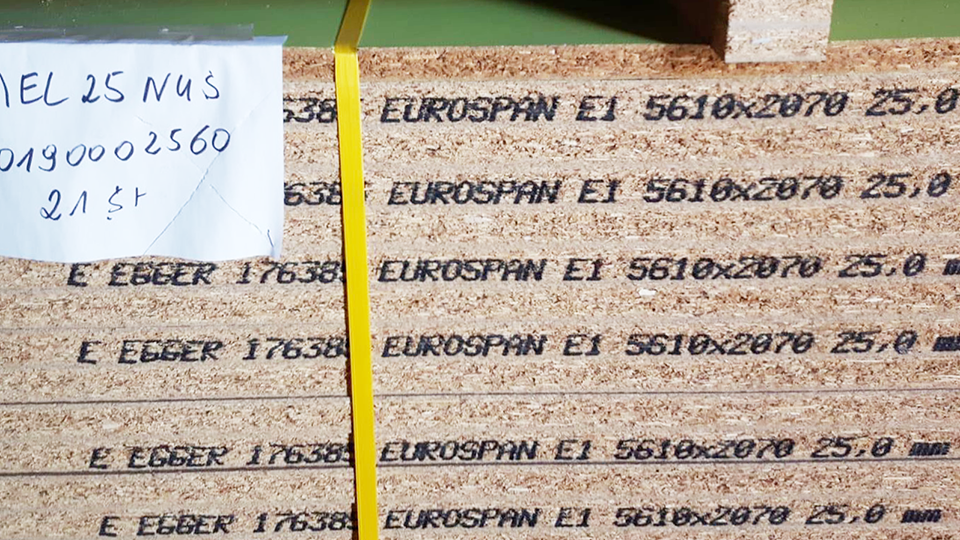 25 NUŠ
0190002560
21 Št
EUROSPAN E1 5610x2070 25,0
EUROSPAN E1 5610x2070 25,0
E EGGER 17638 EUROSPAN E1 5610x2070 25,0
E EGGER 17638 EUROSPAN E1 5610x2070 25,0
E EGGER 17638 EUROSPAN E1 5610x2070 25,0 mm
E EGGER 17638 EUROSPAN E1 5610x2070 25,0 mm